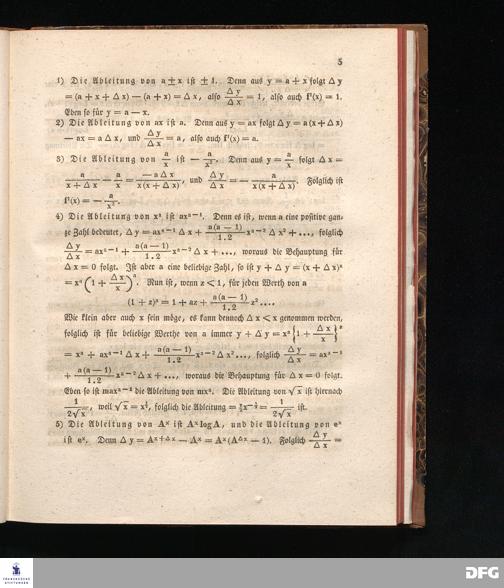 5
1) Die Ableitung von a ± x ist ± 1. Denn aus y = a + x folgt Δ y
= (a + x + Δ x) — (a + x) = Δ x, also Δ y / Δ x = 1, also auch f'(x) = 1.
Eben so für y = a — x.
2) Die Ableitung von ax ist a. Denn aus y = ax folgt Δ y = a (x + Δ x)
— ax = a Δ x, und Δ y / Δ x = a, also auch f'(x) = a.
3) Die Ableitung von a/x ist — a/x². Denn aus y = a/x folgt Δ x =
a / (x + Δ x) — a/x = — a Δ x / x(x + Δ x), und Δ y / Δ x = — a / x(x + Δ x). Folglich ist
f'(x) = — a/x².
4) Die Ableitung von xᵃ ist axᵃ⁻¹. Denn es ist, wenn a eine positive gan-
ze Zahl bedeutet, Δ y = axᵃ⁻¹ Δ x + a(a — 1)/1.2 xᵃ⁻² Δ x² + ..., folglich
Δ y / Δ x = axᵃ⁻¹ + a(a — 1)/1.2 xᵃ⁻² Δ x + ..., woraus die Behauptung für
Δ x = 0 folgt. Ist aber a eine beliebige Zahl, so ist y + Δ y = (x + Δ x)ᵃ
= xᵃ (1 + Δ x / x)ᵃ. Nun ist, wenn z < 1, für jeden Werth von a
(1 + z)ᵃ = 1 + az + a(a — 1)/1.2 z² ....
Wie klein aber auch x sein möge, es kann dennoch Δ x < x genommen werden,
folglich ist für beliebige Werthe von a immer y + Δ y = xᵃ {1 + Δ x / x}ᵃ
= xᵃ + axᵃ⁻¹ Δ x + a(a — 1)/1.2 xᵃ⁻² Δ x² ..., folglich Δ y / Δ x = axᵃ⁻¹
+ a(a — 1)/1.2 xᵃ⁻² Δ x + ..., woraus die Behauptung für Δ x = 0 folgt.
Eben so ist maxᵃ⁻¹ die Ableitung von mxᵃ. Die Ableitung von √x ist hiernach
1/2√x, weil √x = x^½, folglich die Ableitung = ½x^—½ = 1/2√x ist.
5) Die Ableitung von Aˣ ist Aˣ log A, und die Ableitung von eˣ
ist eˣ. Denn Δ y = Aˣ⁺Δˣ — Aˣ = Aˣ (AΔˣ — 1). Folglich Δ y / Δ x =
FRANCKESCHE
STIFTUNGEN
DFG